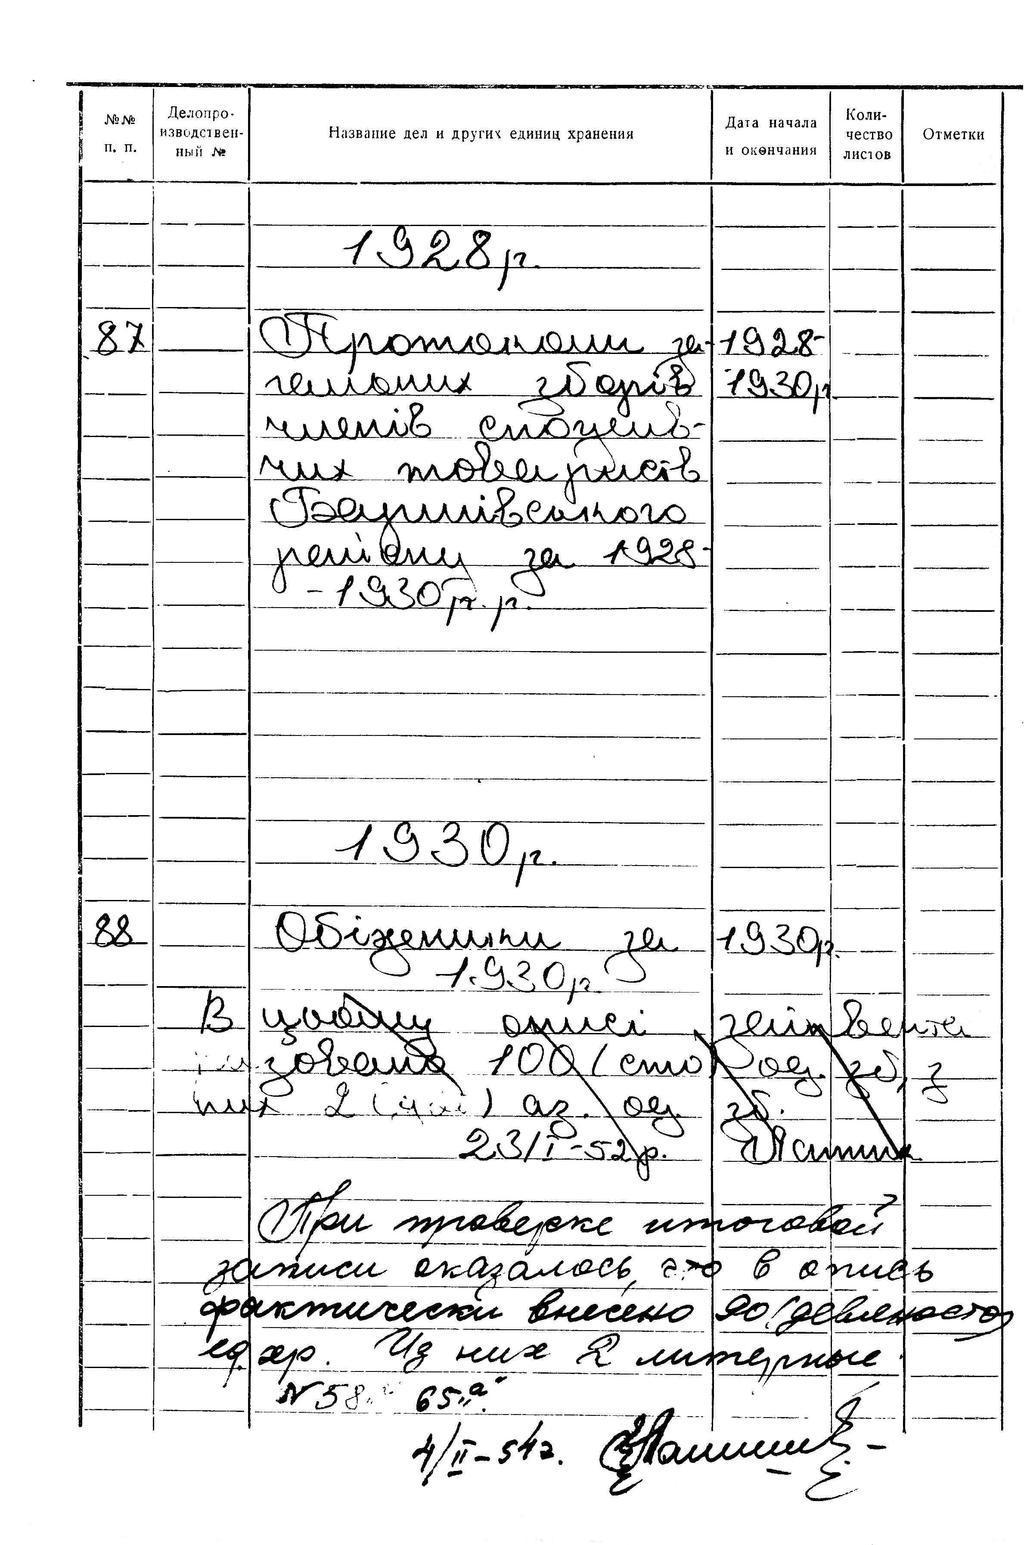 №№ п. п. Делопро- изводствен- ный № Название дел и других единиц хранения Дата начала и окончания Коли- чество листов Отметки
1928 р.
87 Протоколи за- 1928-
гальних зборів 1930 р.
членів спожив-
чих товариств
району за 1928-
-1930 р. р.
1930 р.
88 Обіжники за 1930 р.
1930 р.
В цьому описі заінвента
лизовано 100 (сто) од. зб, з
них 2 (дві) аз. од. зб.
23/I-52 р.
При проверке итоговой
записи оказалось, что в опись
фактически внесено 90 (девяносто)
ед. хр. Из них 2 литерные.
N 58 „ " 65 „а".
4/II-54 г.